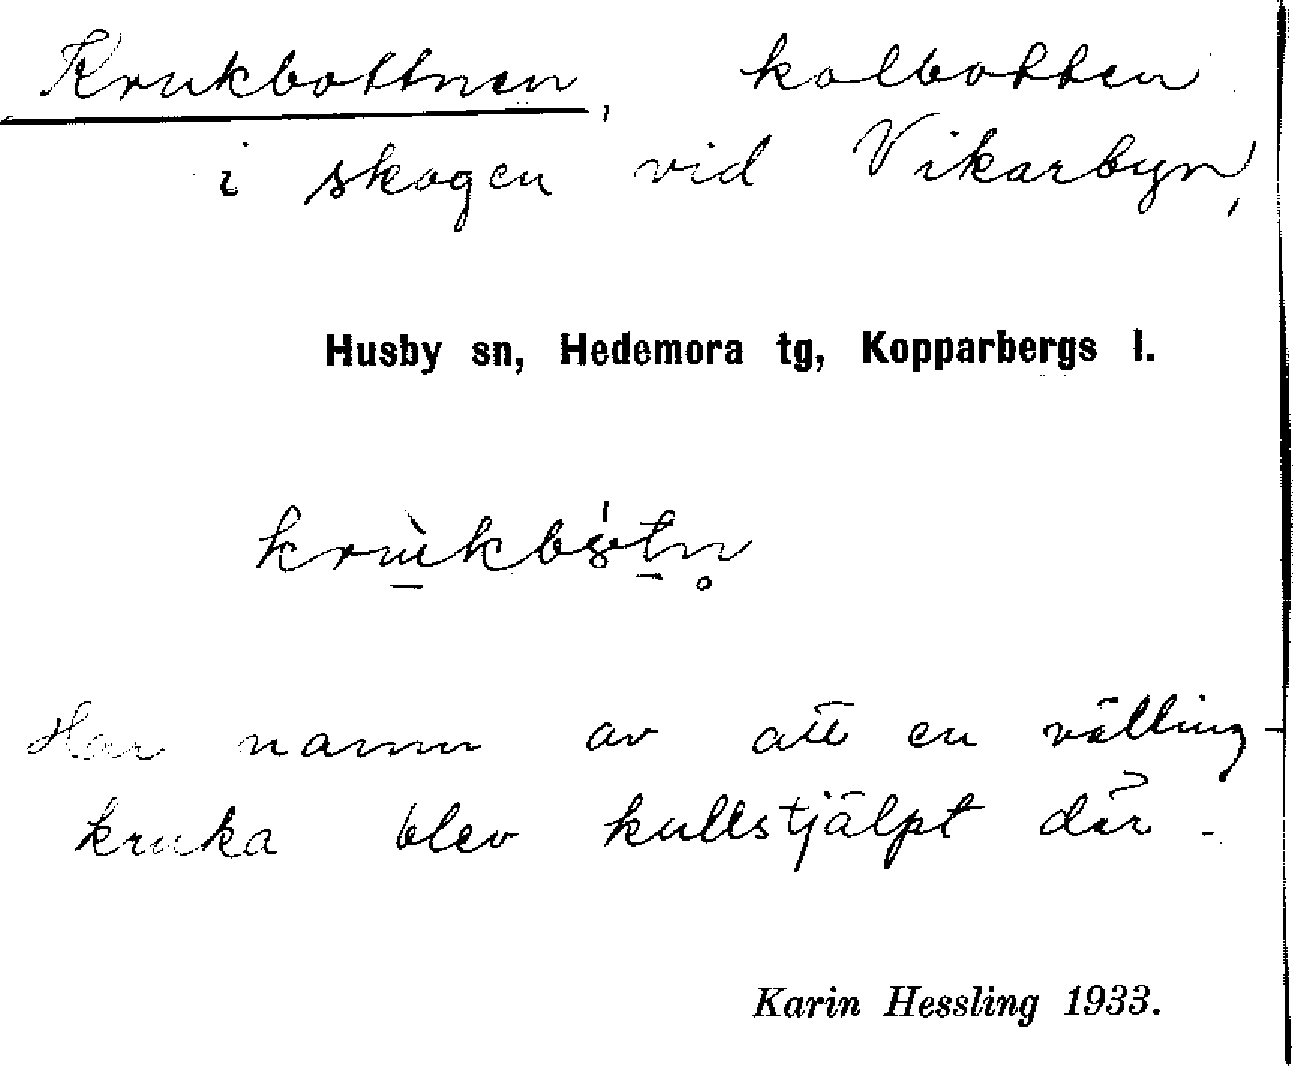 Krukbottnen, kolbotten
i skogen vid Vikarbyn,
Husby sn, Hedemora tg, Kopparbergs l.
Har namn av att en välling-
kruka blev kullstjälpt där.
Karin Hessling 1933.